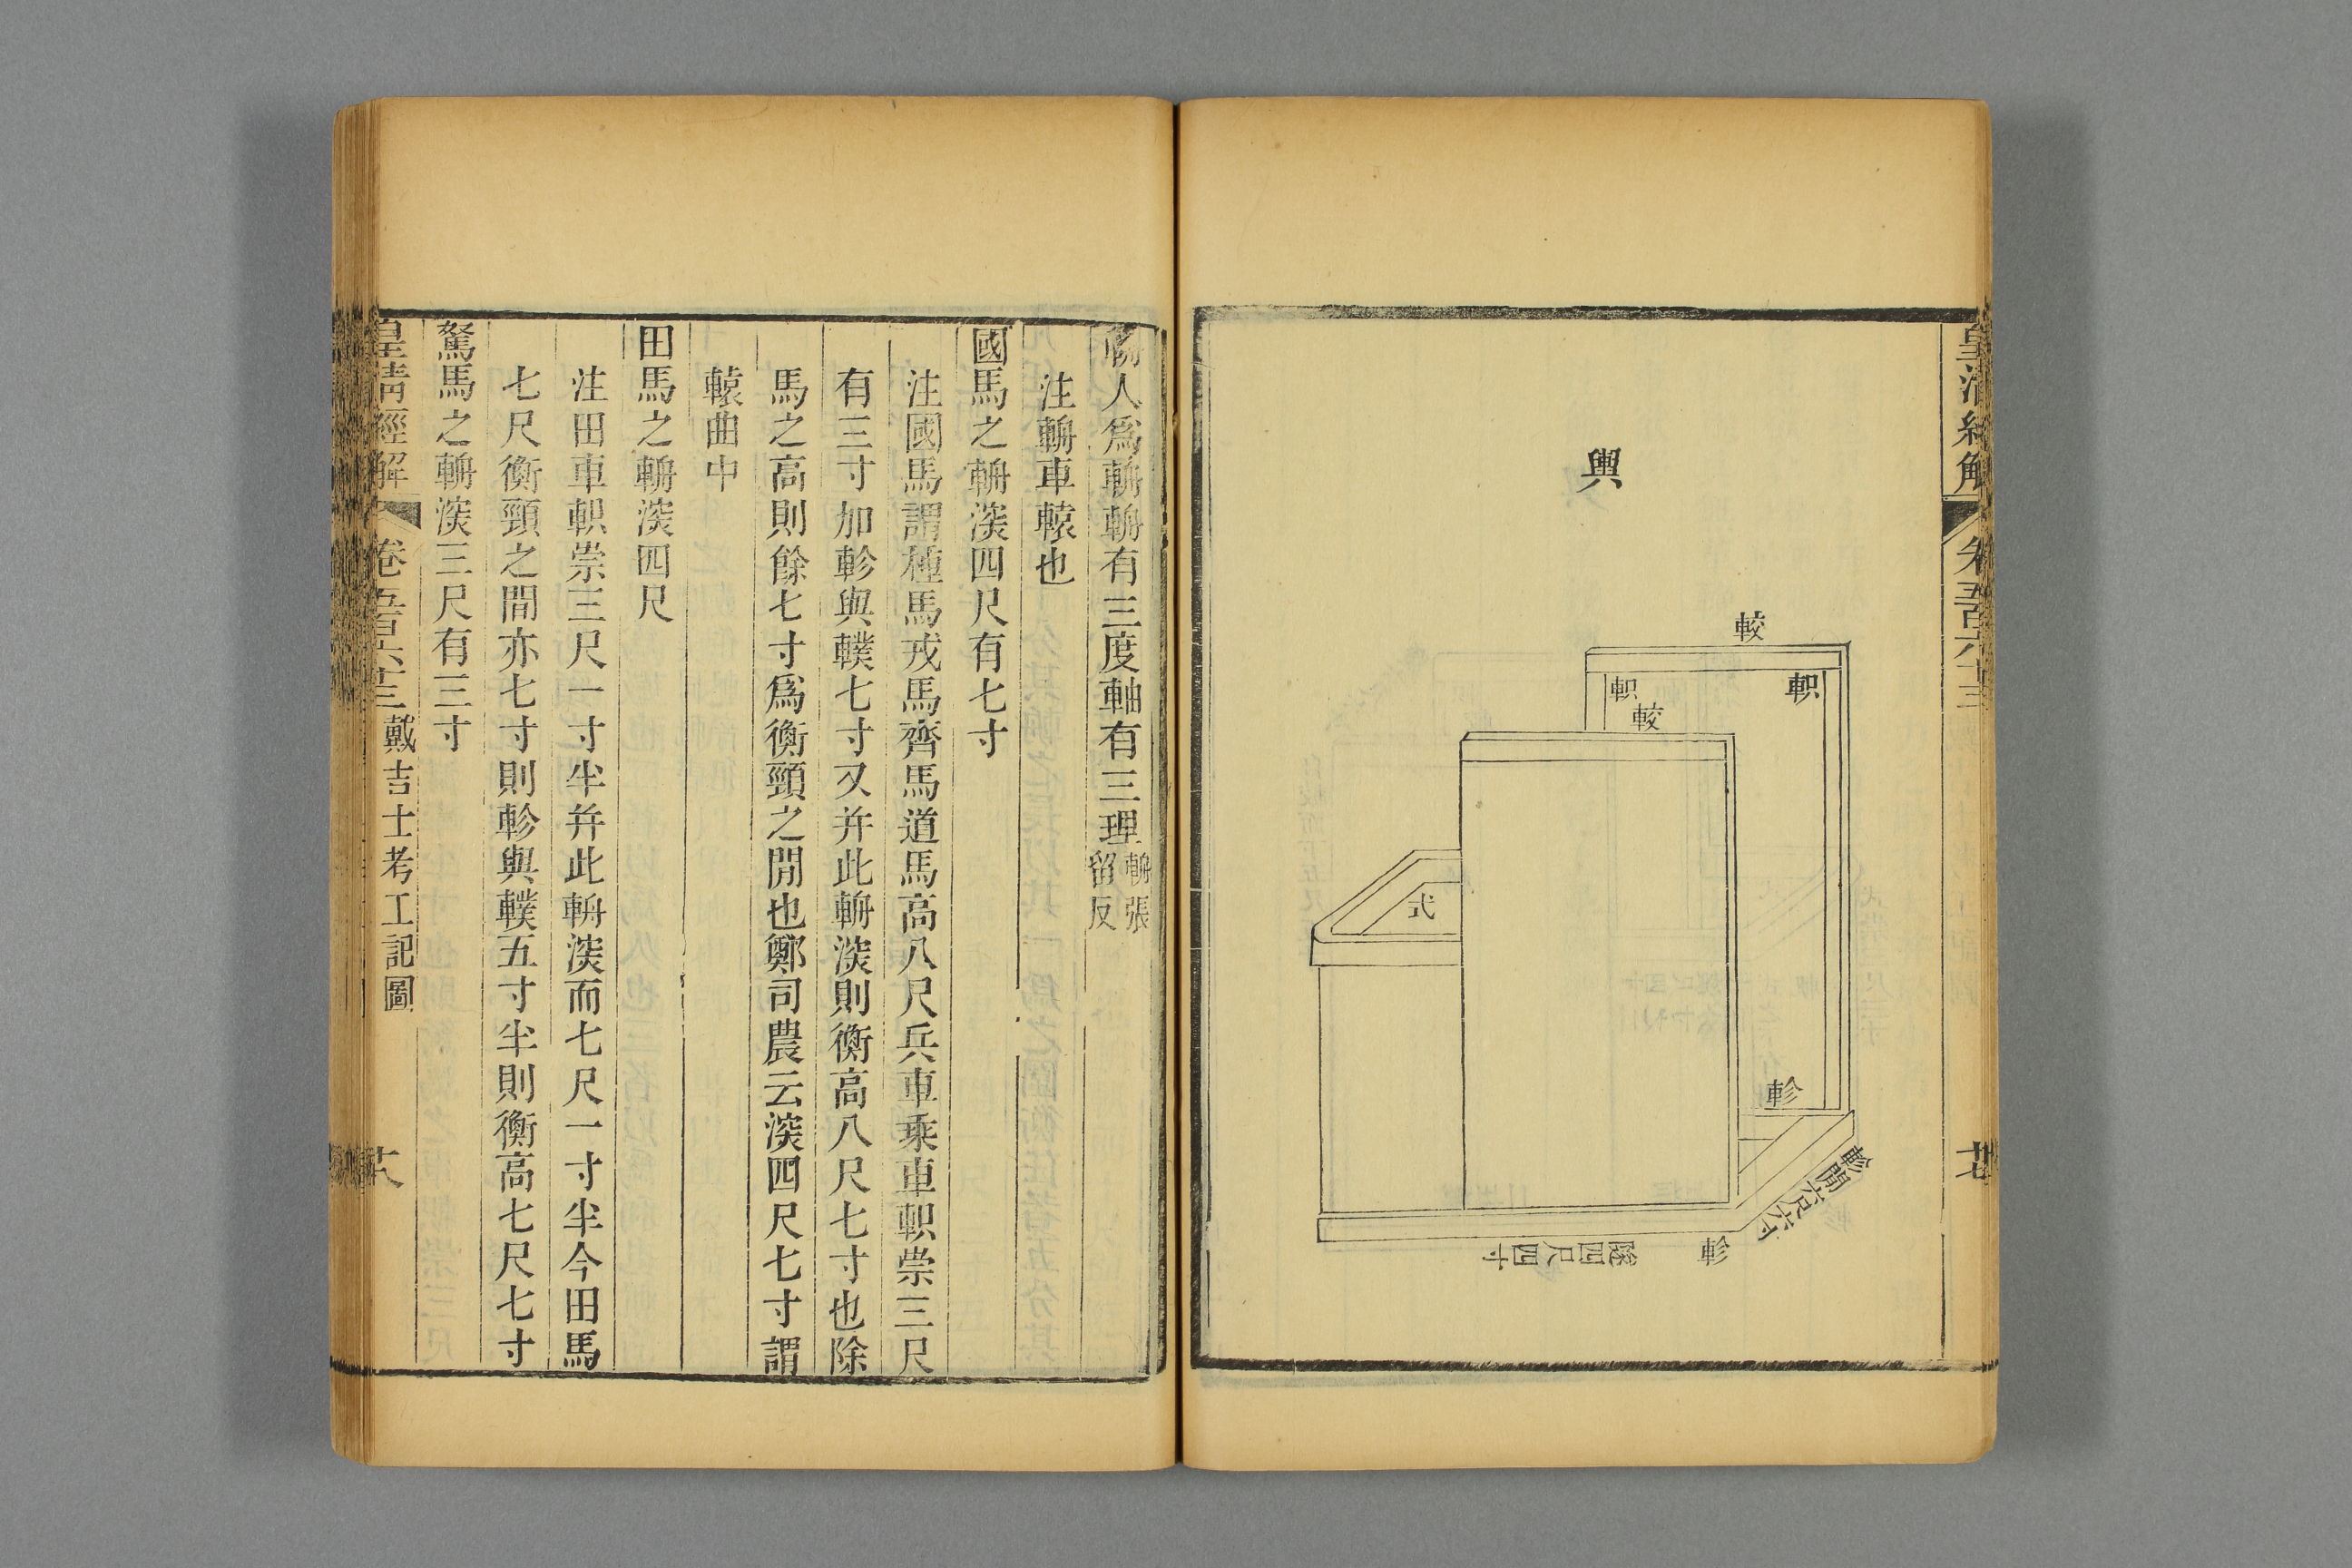 皇清經解
卷五百六十三
廿七
輿
較
軹
軹
較
式
軫
軫閒六尺六寸
軫
隧四尺四寸
輈人爲輈輈有三度軸有三理輈張留反
注輈車轅也
國馬之輈深四尺有七寸
注國馬謂種馬戎馬齊馬道馬高八尺兵車乘車軹崇三尺
有三寸加軫與轐七寸又幷此輈深則衡高八尺七寸也除
馬之高則餘七寸爲衡頸之閒也鄭司農云深四尺七寸謂
轅曲中
田馬之輈深四尺
注田車軹崇三尺一寸半幷此輈深而七尺一寸半今田馬
七尺衡頸之閒亦七寸則軫與轐五寸半則衡高七尺七寸
駑馬之輈深三尺有三寸
皇清經解
卷五百六十三
戴吉士考工記圖
廿八